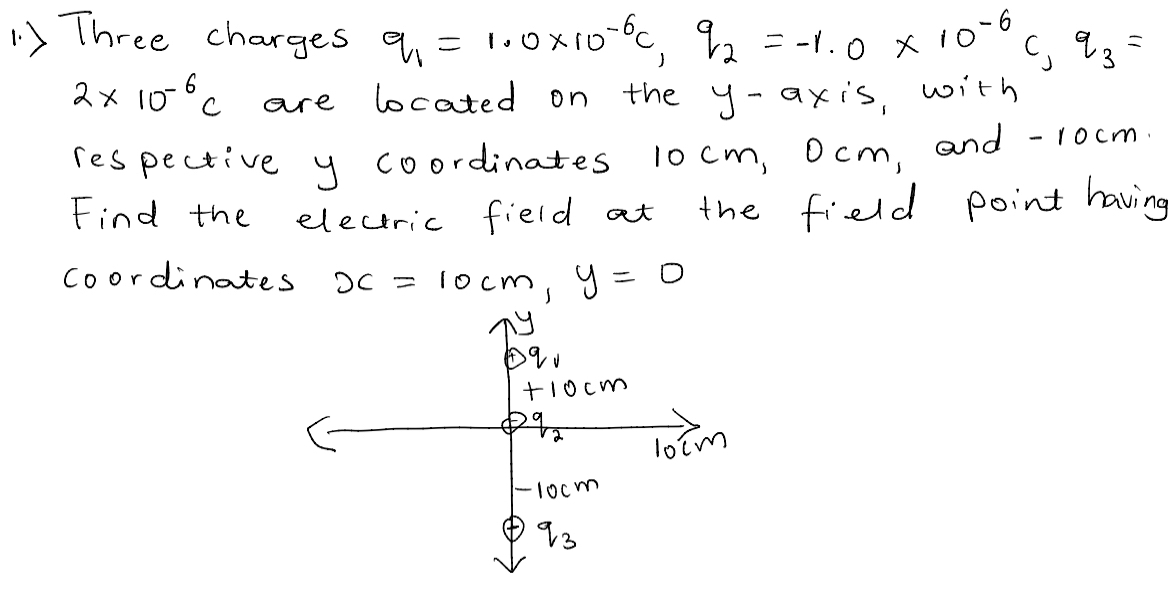 1.) Three charges q₁ = 1.0×10⁻⁶C, q₂ = -1.0 × 10⁻⁶ C, q₃ =
2× 10⁻⁶ C are located on the y-axis, with
respective y coordinates 10 cm, 0cm, and -10cm.
Find the electric field at the field point having
coordinates x = 10cm, y = 0
y
+ q₁
+10cm
- q₂
10cm
-10cm
+ q₃